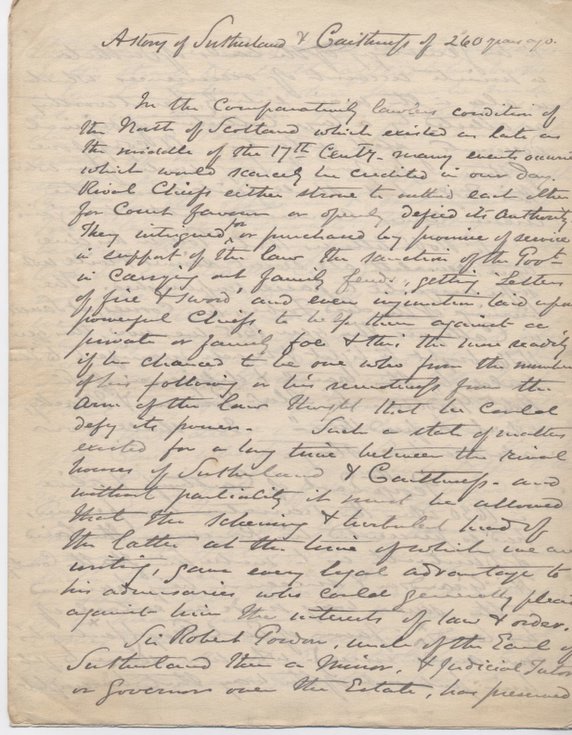 A story of Sutherland & Caithness of 260 years ago.
In the comparatively lawless condition of
the North of Scotland which existed as late as
the middle of the 17th Centy. many events occurred
which would scarcely be credited in our day.
Rival Chiefs either strove to outbid each other
for Court favour or openly defied its authority
They intrigued for or purchased by promise of service
in support of the law the sanction of the Govt.
in carrying out family feuds, getting 'Letters
of fire & sword' and even injunctions laid upon
powerful Chiefs to help them against a
private or family foe & this the more readily
if he chanced to be one who from the number
of his following or his remoteness from the
arm of the law thought that he could
defy its power. Such a state of matters
existed for a long time between the rival
houses of Sutherland & Caithness - and
without partiality it must be allowed
that the scheming & turbulent head of
the latter at the time of which we are
writing, gave every legal advantage to
his adversaries who could generally plead
against him the interests of law & order.
Sir Robert Gordon, uncle of the Earl of
Sutherland then a Minor, & Judicial Tutor
or Governor over the Estate, has preserved